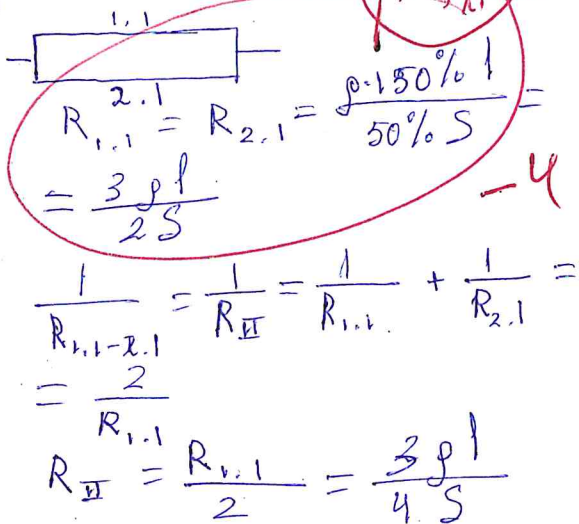 1.1
2.1
R₁.₁ = R₂.₁ = ρ·150% l / 50% S =
= 3ρl / 2S
-4
1/R₁.₁₋₂.₁ = 1/R_II = 1/R₁.₁. + 1/R₂.₁ =
= 2/R₁.₁
R_II = R₁.₁/2 = 3ρl / 4S